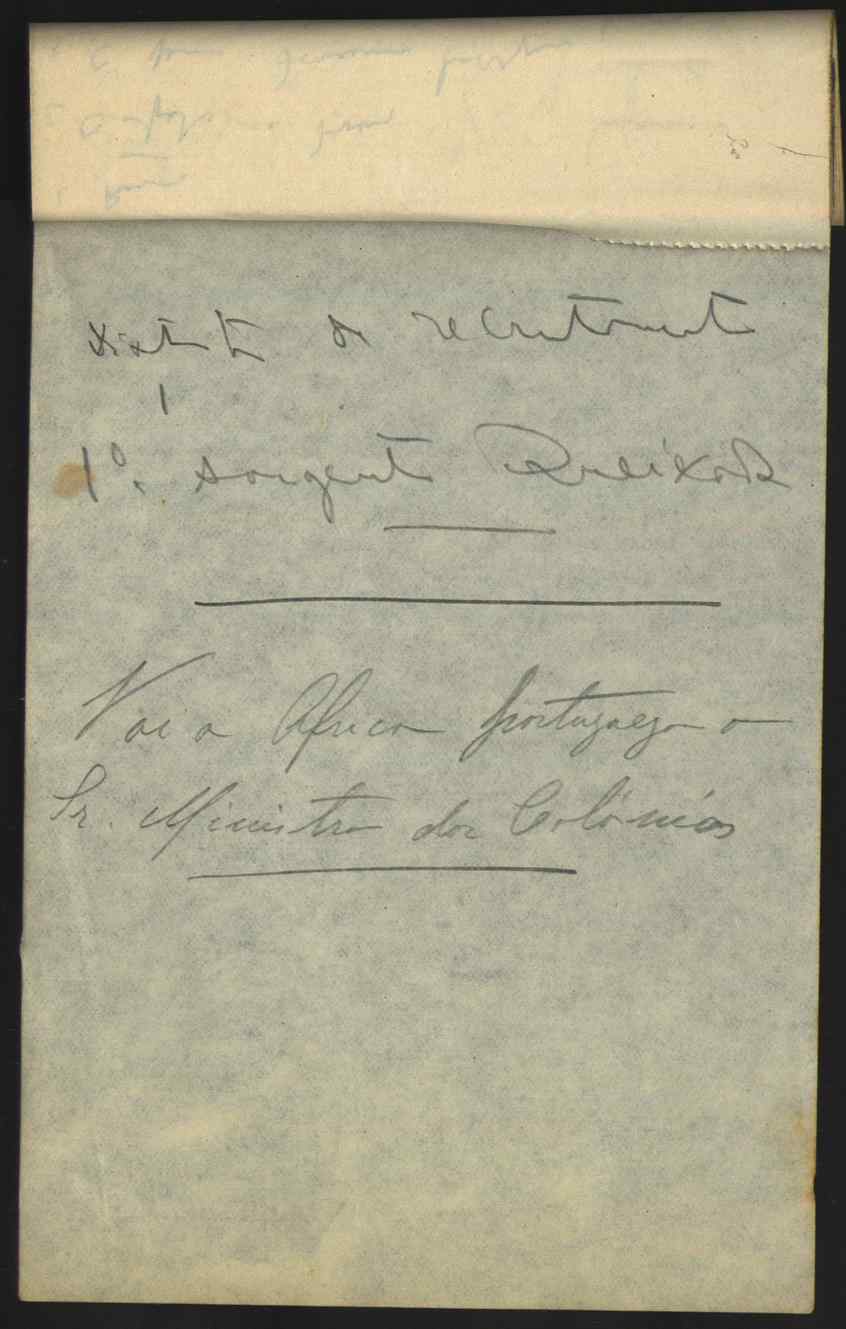 distrito de recrutamento
1
1º. sargento
Vai a Africa portuguesa o
Sr. Ministro das Colónias